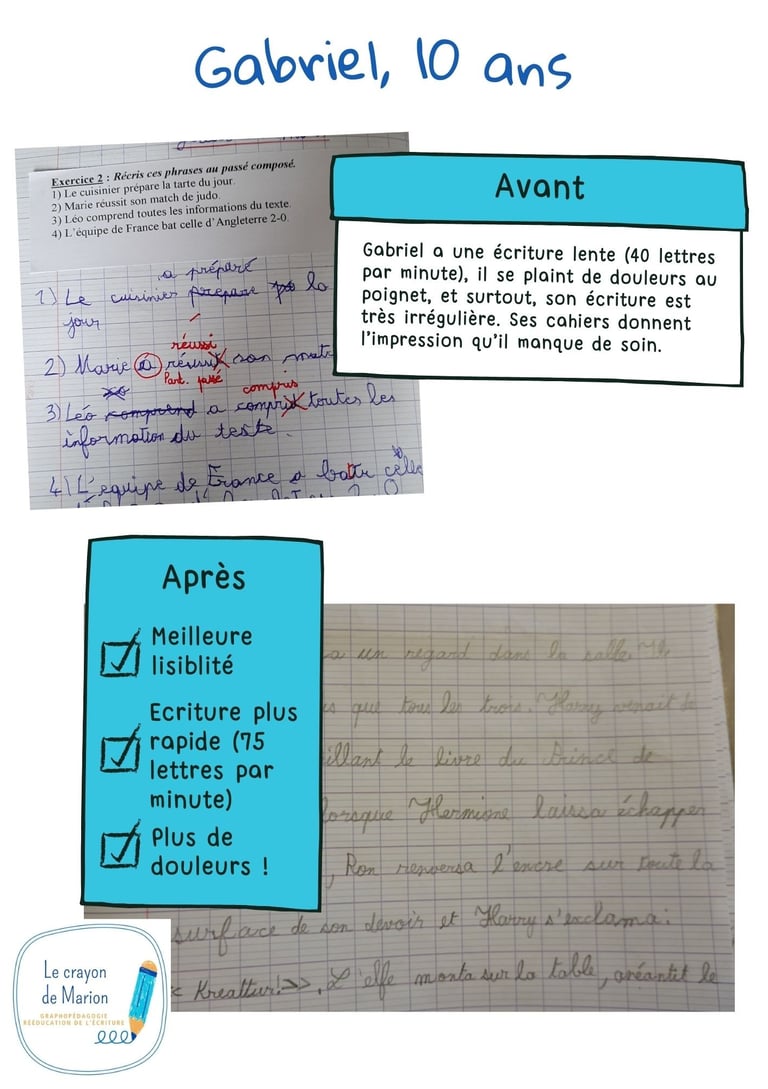 Gabriel, 10 ans
Exercice 2 : Récris ces phrases au passé composé.
1) Le cuisinier prépare la tarte du jour.
2) Marie réussit son match de judo.
3) Léo comprend toutes les informations du texte.
4) L'équipe de France bat celle d'Angleterre 2-0.
a préparé
1) Le cuisinier prépare la
jour
réussi
2) Marie a réussit son
Part. passé
compris
3) Léo comprend a comprit toutes les
information du teste.
4) L'equipe de France a battu celle
Avant
Gabriel a une écriture lente (40 lettres
par minute), il se plaint de douleurs au
poignet, et surtout, son écriture est
très irrégulière. Ses cahiers donnent
l'impression qu'il manque de soin.
Après
Meilleure
lisiblité
Ecriture plus
rapide (75
lettres par
minute)
Plus de
douleurs !
a un regard dans la salle. Ils
que tous les trois. Harry venait de
le livre du Prince de
lorsque Hermione laissa échapper
, Ron renversa l'encre sur toute la
surface de son devoir et Harry s'exclama:
< Kreattur!>>. L'elfe monta sur la table, le
Le crayon
de Marion
GRAPHOPÉDAGOGIE
RÉÉDUCATION DE L'ÉCRITURE